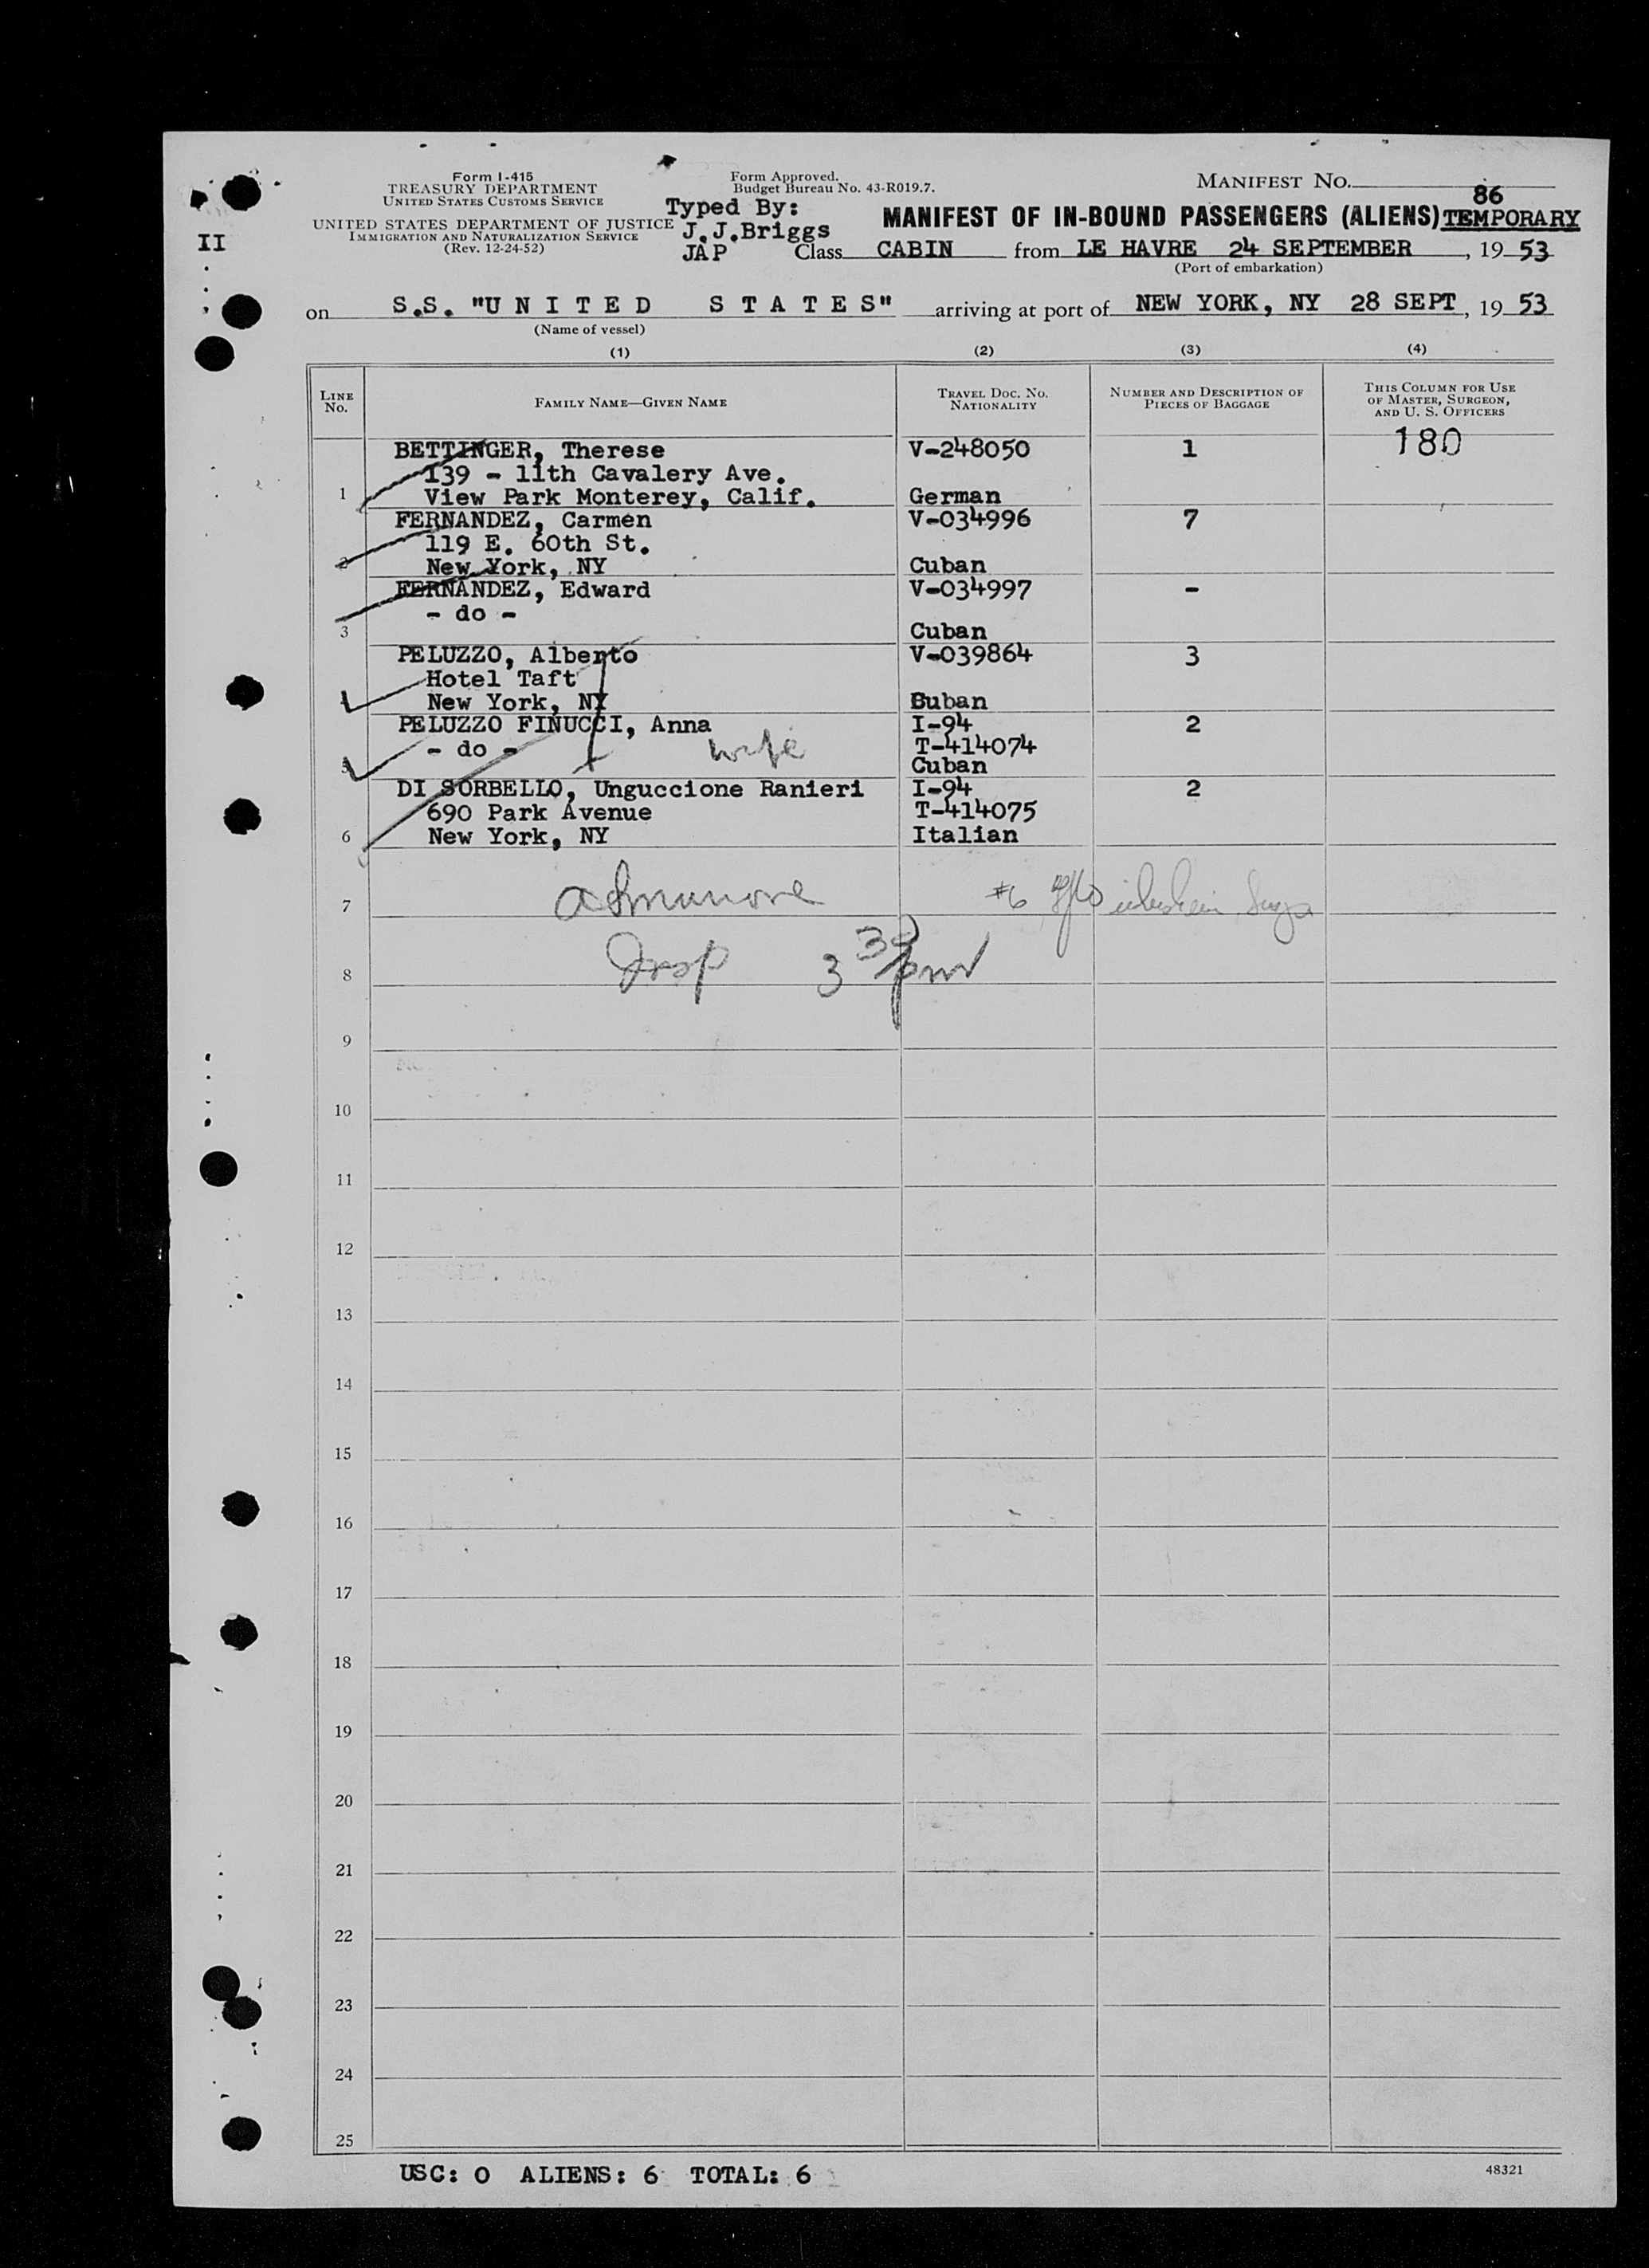 Form I-415
TREASURY DEPARTMENT
UNITED STATES CUSTOMS SERVICE
UNITED STATES DEPARTMENT OF JUSTICE
IMMIGRATION AND NATURALIZATION SERVICE
(Rev. 12-24-52)
Form Approved.
Budget Bureau No. 43-R019.7.
Typed By:
J.J.Briggs
JAP
MANIFEST NO. 86
MANIFEST OF IN-BOUND PASSENGERS (ALIENS) TEMPORARY
II
Class CABIN from LE HAVRE 24 SEPTEMBER, 19 53
(Port of embarkation)
on S.S. "U N I T E D S T A T E S" arriving at port of NEW YORK, NY 28 SEPT, 19 53
(Name of vessel)
(1) (2) (3) (4)
LINE NO.
FAMILY NAME—GIVEN NAME
TRAVEL DOC. NO. NATIONALITY
NUMBER AND DESCRIPTION OF PIECES OF BAGGAGE
THIS COLUMN FOR USE OF MASTER, SURGEON, AND U. S. OFFICERS
BETTINGER, Therese V-248050 1 180
139 - 11th Cavalery Ave.
1 View Park Monterey, Calif. German
FERNANDEZ, Carmen V-034996 7
119 E. 60th St.
2 New York, NY Cuban
FERNANDEZ, Edward V-034997 -
- do -
3 Cuban
PELUZZO, Alberto V-039864 3
Hotel Taft
New York, NY Buban
PELUZZO FINUCCI, Anna I-94 2
- do - wife T-414074
5 Cuban
DI SORBELLO, Unguccione Ranieri I-94 2
690 Park Avenue T-414075
6 New York, NY Italian
7 #6
8 Insp 3 30 pm
9
10
11
12
13
14
15
16
17
18
19
20
21
22
23
24
25
USC: 0 ALIENS: 6 TOTAL: 6
48321